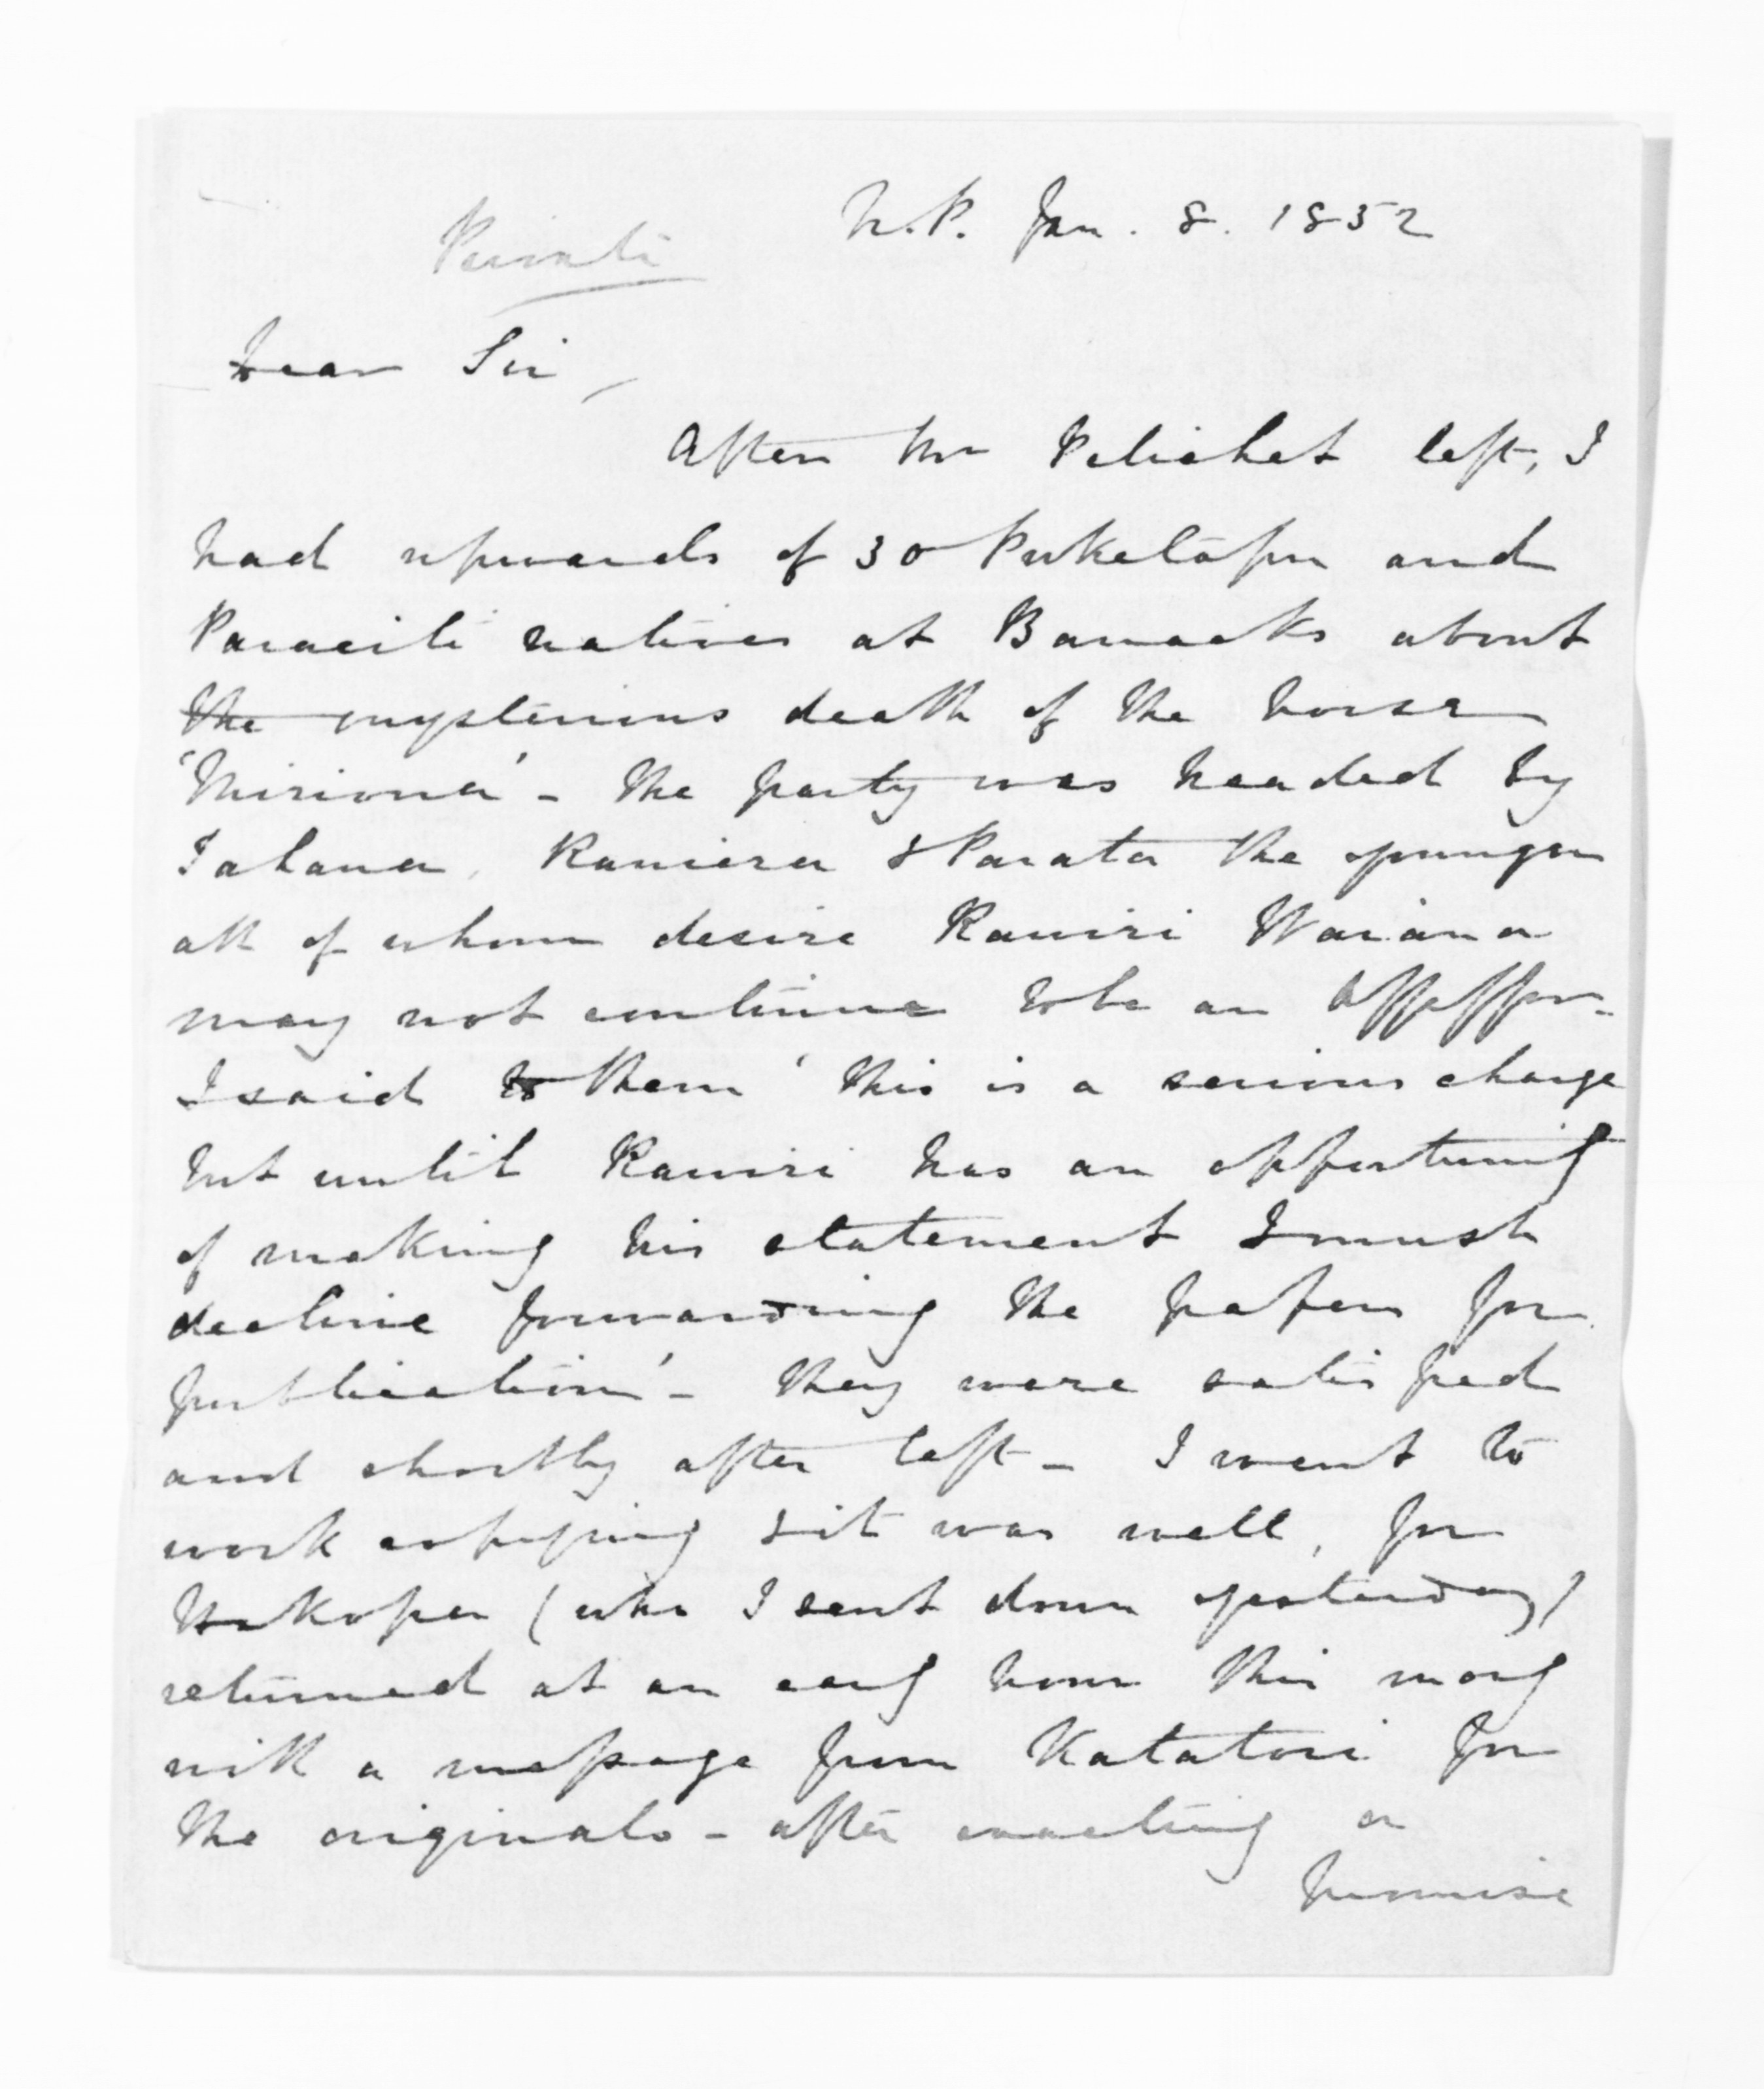 N.P. Jan. 8. 1852
Private
Dear Sir,
After Mr Pelichet left, I
had upwards of 30 Puketapu and
natives at Barracks about
the mysterious death of the horse
'Miriona' - The party was headed by
Tahana, Raniera & Parata the younger
all of whom desire Rawiri Waiaua
may not continue to be an Assessor.
I said to them 'this is a serious charge
but until Rawiri has an opportunity
of making his statement I must
decline forwarding the papers for
publication' - They were satisfied
and shortly after left - I went to
work copying & it was well, for
(who I sent down yesterday)
returned at an early hour this morng
with a message from Katatori for
the originals - after exacting a
promise